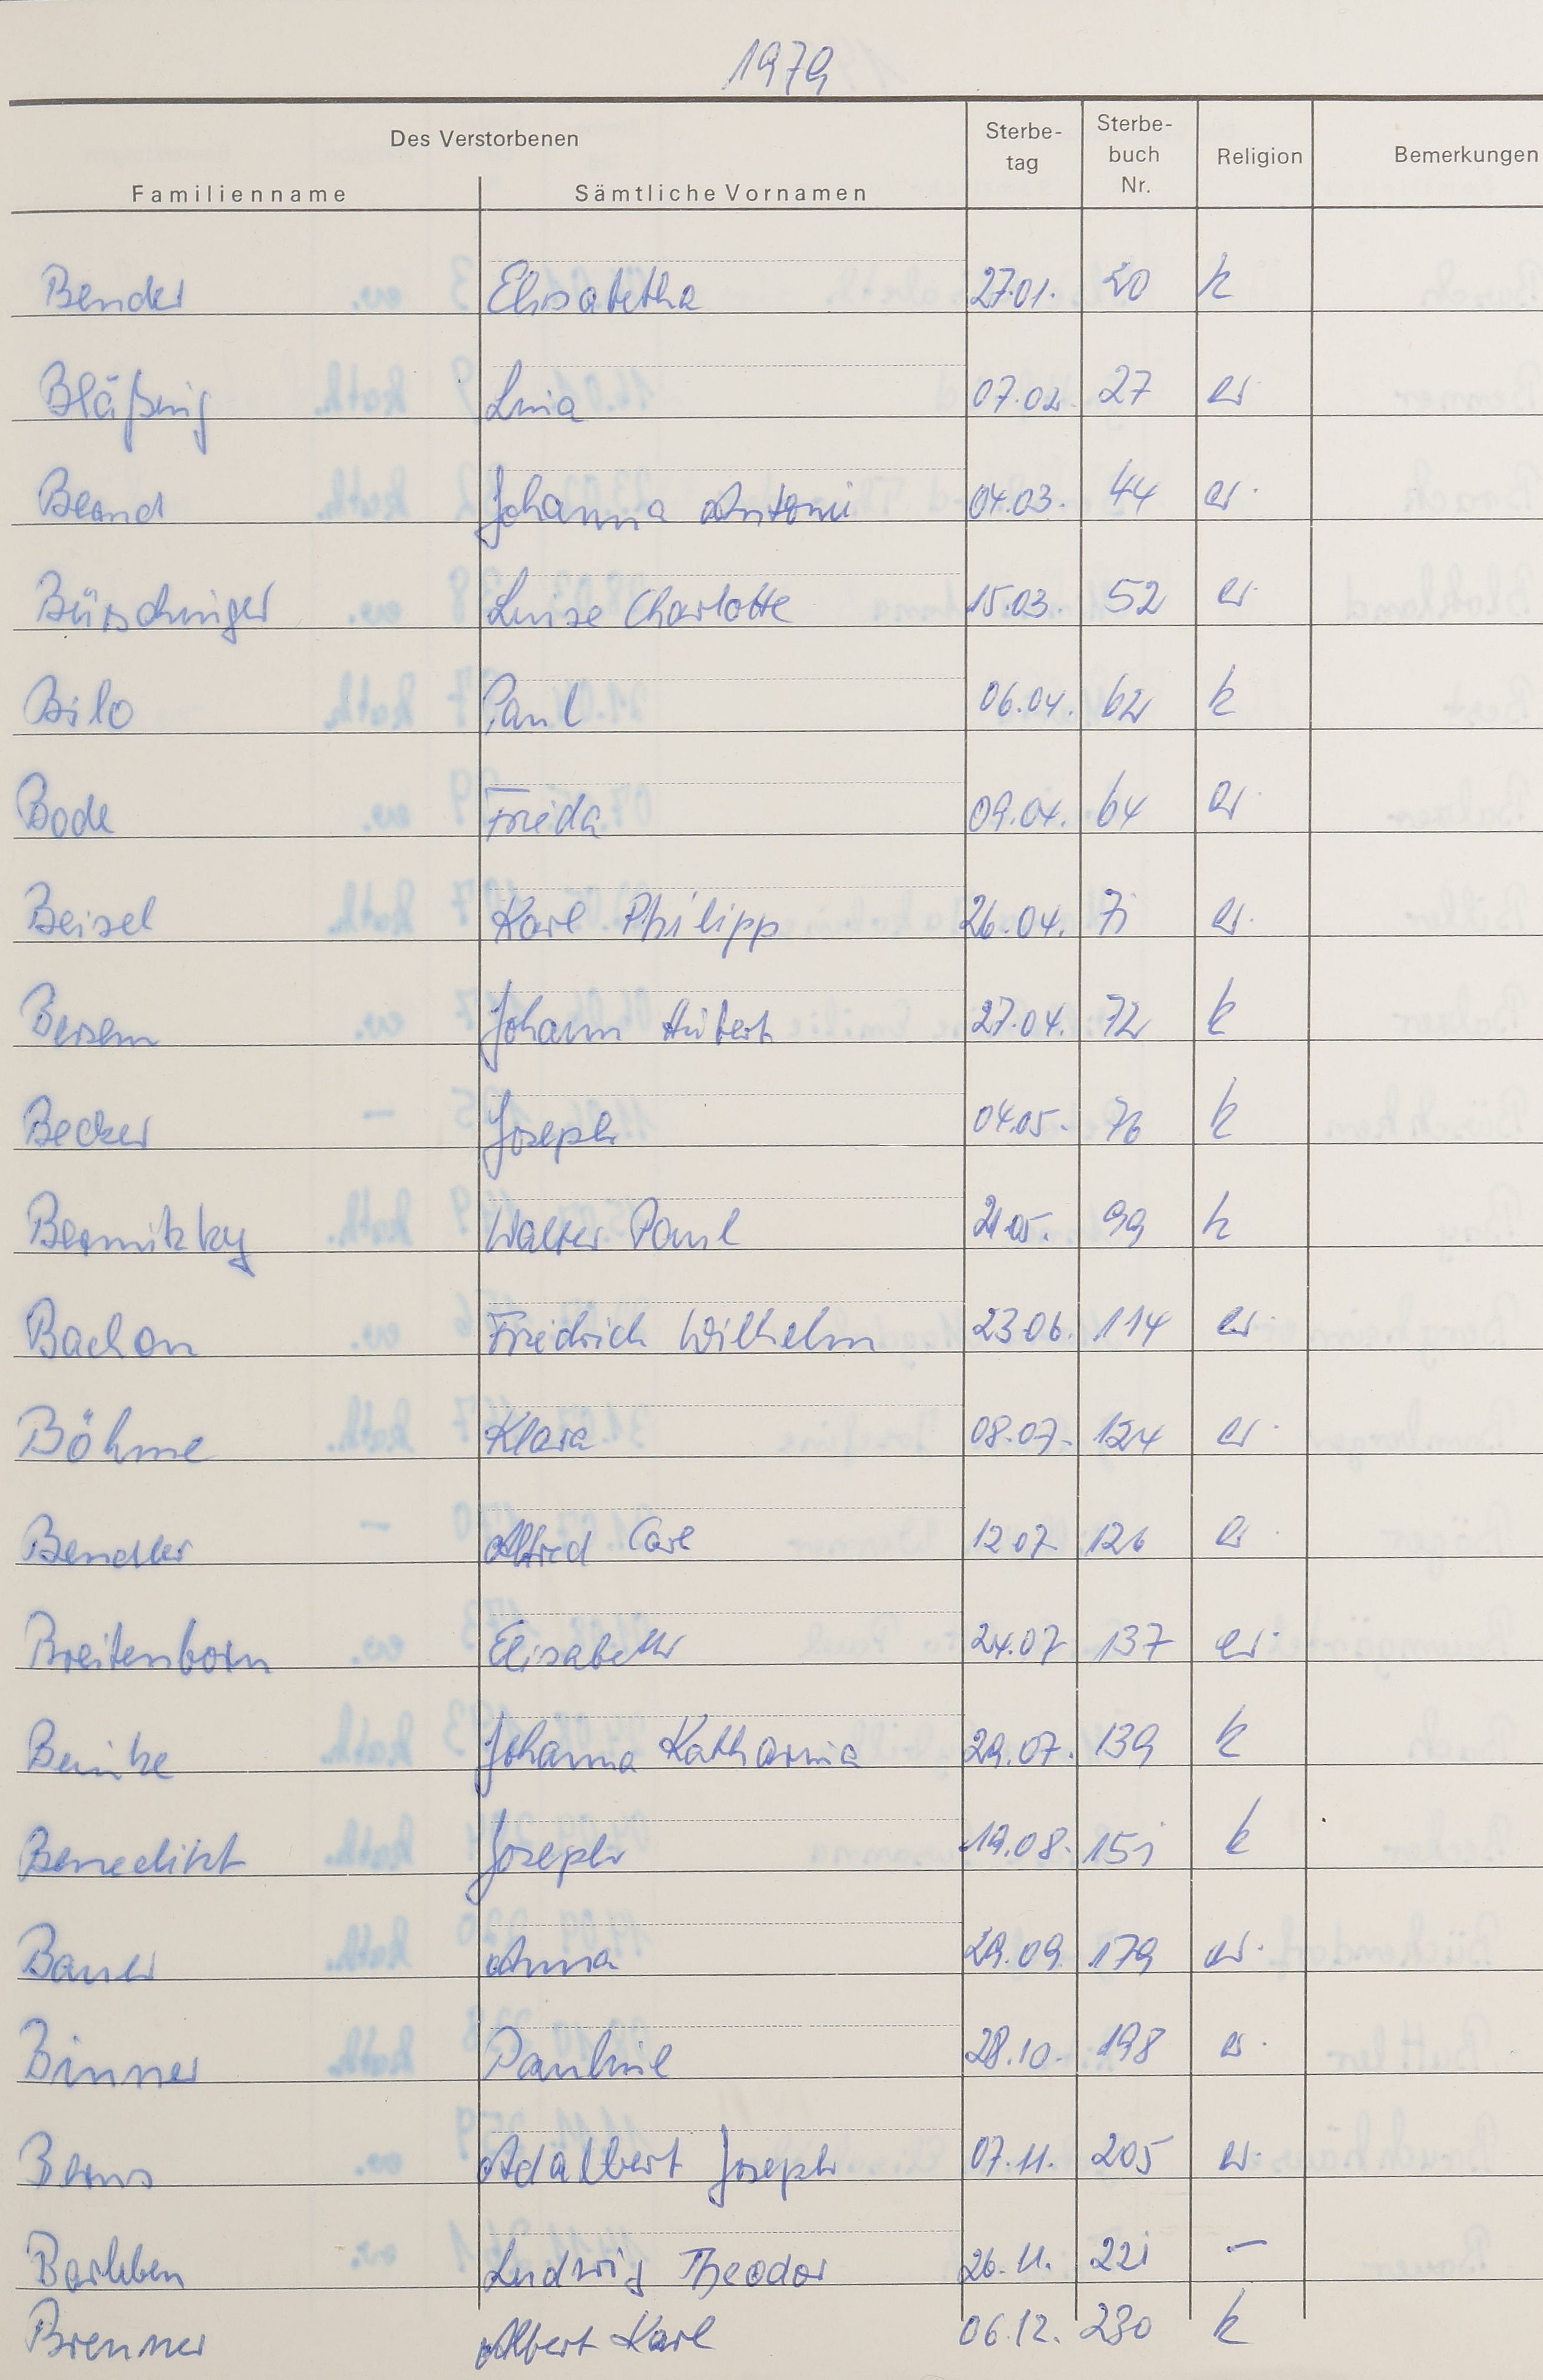 1979
Des Verstorbenen
Familienname Sämtliche Vornamen Sterbe-tag Sterbe-buch Nr. Religion Bemerkungen
Bender Elisabetha 27.01. 20 k
Bläßing Lina 07.02. 27 ev.
Brand Johanna Antonie 04.03. 44 ev.
Bürschinger Luise Charlotte 15.03. 52 ev.
Bilo Paul 06.04. 62 k
Bode Frieda 09.04. 64 ev.
Beisel Karl Philipp 26.04. 71 ev.
Bersem Johann Hubert 27.04. 72 k
Becker Joseph 04.05. 76 k
Walter Paul 21.05. 99 k
Bachon Friedrich Wilhelm 23.06. 114 ev.
Böhme Klara 08.07. 124 ev.
Bendler Alfred Carl 12.07 126 ev.
Breitenborn Elisabeth 24.07 137 ev.
Beinke Johanna Katharina 29.07. 139 k
Benedikt Joseph 19.08. 151 k
Bauer Anna 29.09. 179 ev.
Binner Pauline 28.10. 198 ev.
Berns Adalbert Joseph 07.11. 205 ev.
Barleben Ludwig Theodor 26.11. 221 –
Brenner Albert Karl 06.12. 230 k